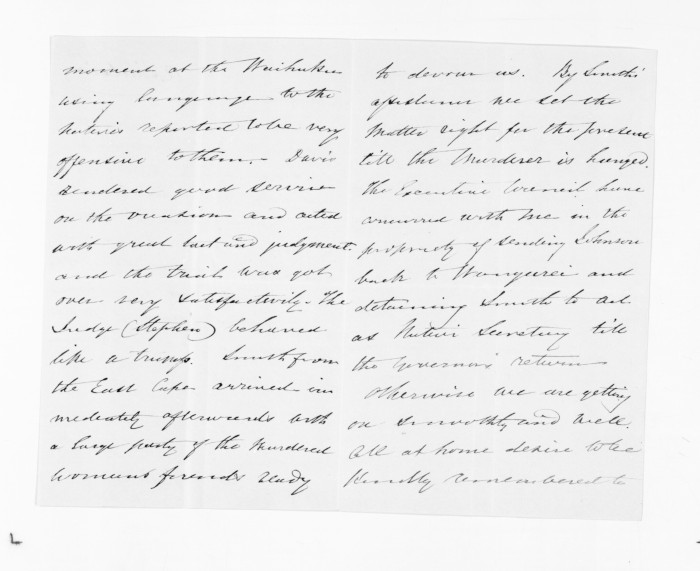 moment at the Waihuku
using language to the
Natives reported to be very
offensive to them, - Davis
rendered good service
on the occasion and acted
with great tact and judgment
and the trial was got
over very satisfactorily. The
Judge (Stephen) behaved
like a trump. Smith from
the East Cape arrived im
mediately afterwards with
a large party of the Murdered
womans friends ready
to devour us. By Smith's
assistance we set the
Matter right for the present
till the Murderer is hanged.
The Executive Council have
concurred with me in the
propriety of sending Johnson
back to Wangarei and
detaining Smith to act
as Native Secretary till
the Governor's return
Otherwise we are getting
on smoothly and well.
All at home desire to be
Kindly remembered to